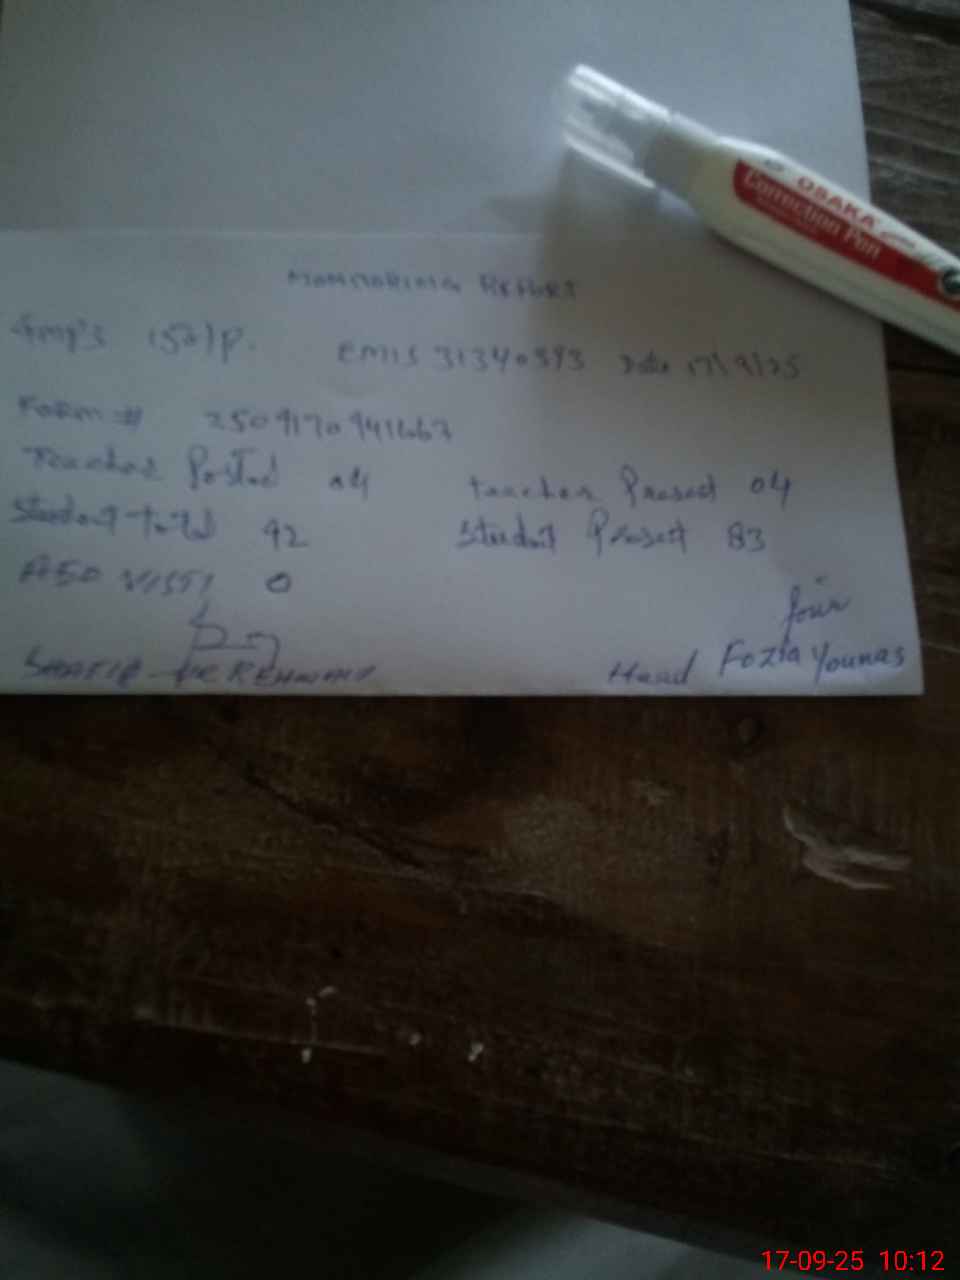 OSAKA
Correction Pen
MONITORING REPORT
Gmps 150/P. EMIS 31340393 Date 17/9/25
Form # 2509170941663
Teacher Posted 04 teacher Present 04
Student total 92 Student Present 83
AEO VISIT 0
SHAFIQ UR REHMAN Head Fozia Younas
17-09-25 10:12